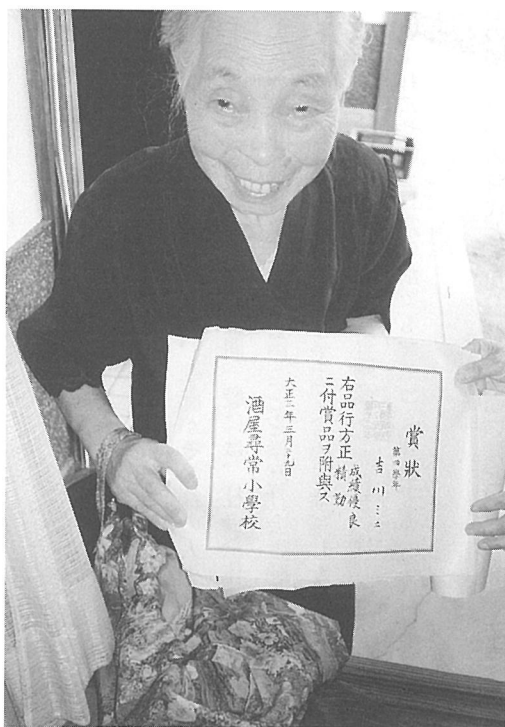 賞狀
第四學年
吉川ミニ
右品行方正成績優良精勤
ニ付賞品ヲ附與ス
大正二年三月廿九日
酒屋尋常小學校